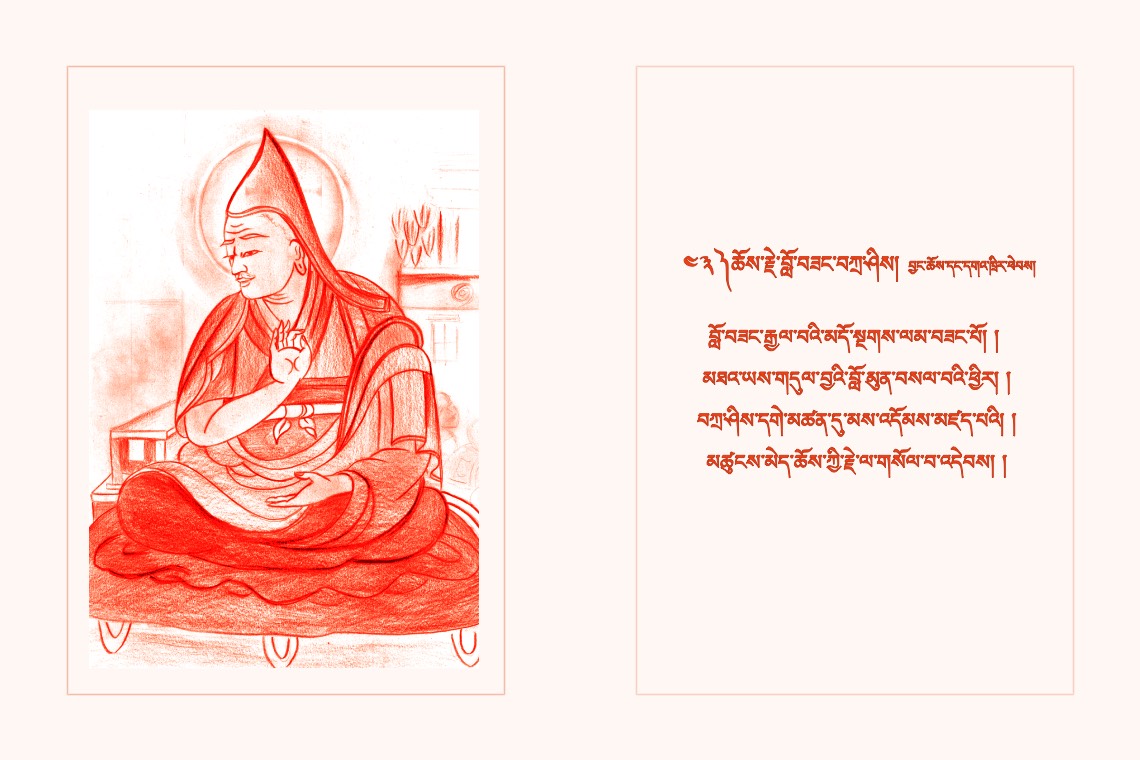 ༤༣ ༽ ཆོས་རྗེ་བློ་བཟང་བཀྲ་ཤིས། བྱང་ཆོས་དང་དགའ་ཁྲིར་ཕེབས།
བློ་བཟང་རྒྱལ་བའི་མདོ་སྔགས་ལམ་བཟང་པོ། །
མཐའ་ཡས་གདུལ་བྱའི་བློ་མུན་བསལ་བའི་ཕྱིར། །
བཀྲ་ཤིས་དགེ་མཚན་དུ་མས་འདོམས་མཛད་པའི། །
མཚུངས་མེད་ཆོས་ཀྱི་རྗེ་ལ་གསོལ་བ་འདེབས། །